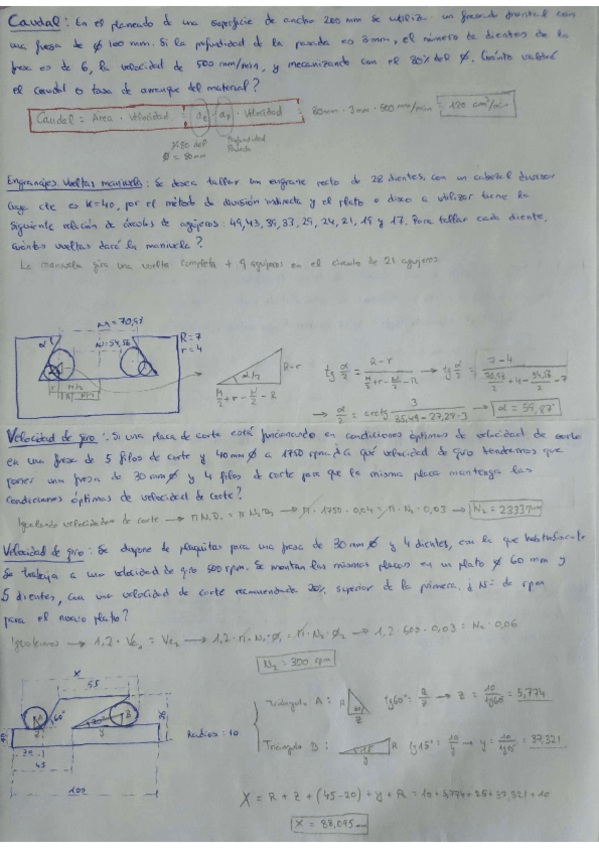 Caudal: En el planeado de una superficie de ancho 200 mm se utiliza un fresado frontal con
una fresa de ∅ 100 mm. Si la profundidad de la pasada es 3 mm, el número de dientes de la
fresa es de 6, la velocidad de 500 mm/min, y mecanizando con el 80% del ∅. Cuánto valdrá
el caudal o tasa de arranque del material?
Caudal = Area · Velocidad = ae · ap · Velocidad = 80mm · 3mm · 500 mm/min = 120 cm³/min
%80 del Profundidad
∅ = 80mm Pasada
Engranajes Vueltas manivela: Se desea tallar un engrane recto de 28 dientes, con un cabezal divisor
cuya cte es K=40, por el método de división indirecta y el plato o disco a utilizar tiene la
siguiente relación de círculos de agujeros: 49, 43, 39, 33, 29, 24, 21, 19 y 17. Para tallar cada diente,
cuántas vueltas dará la manivela?
La manivela gira una vuelta completa + 9 agujeros en el círculo de 21 agujeros.
M = 70,98
N = 54,56
R = 7
r = 4
α
α/2
R-r
M/2 + r - N/2 - R
tg α/2 = R-r / M/2 + r - N/2 - R → tg α/2 = 7-4 / 70,98/2 + 4 - 54,56/2 - 7
→ α/2 = arctg 3 / 35,49 - 27,28 - 3 → α = 59,87°
Velocidad de giro: Si una placa de corte está funcionando en condiciones óptimas de velocidad de corte
en una fresa de 5 filos de corte y 40mm ∅ a 1750 rpm. ¿A qué velocidad de giro tendremos que
poner una fresa de 30 mm ∅ y 4 filos de corte para que la misma placa mantenga las
condiciones óptimas de velocidad de corte?
Igualando velocidades de corte → π · 1750 · 0,04 = π · N₂ · 0,03 → N₂ = 2333
Velocidad de giro: Se dispone de plaquitas para una fresa de 30 mm ∅ y 4 dientes, con la que habitualmente
se trabaja a una velocidad de giro 500 rpm. Se montan las mismas placas en un plato ∅ 60 mm y
5 dientes, con una velocidad de corte recomendada 20% superior de la primera. ¿ Nº de rpm
para el nuevo plato?
Igualamos → 1,2 · Vc₁ = Vc₂ → 1,2 · π · N₁ · ∅₁ = π · N₂ · ∅₂ → 1,2 · 500 · 0,03 = N₂ · 0,06
N₂ = 300 rpm
X
55
60°
A
B
y
45
100
Radios: 10
Triangulo A: R Z tg60° = R/Z → Z = 10/tg60 = 5,774
Triangulo B: R y tg15° = 10/y → y = 37,321
X = R + Z + (45-20) + y + R = 10 + 5,774 + 25 + 37,321 + 10
X = 88,095 mm